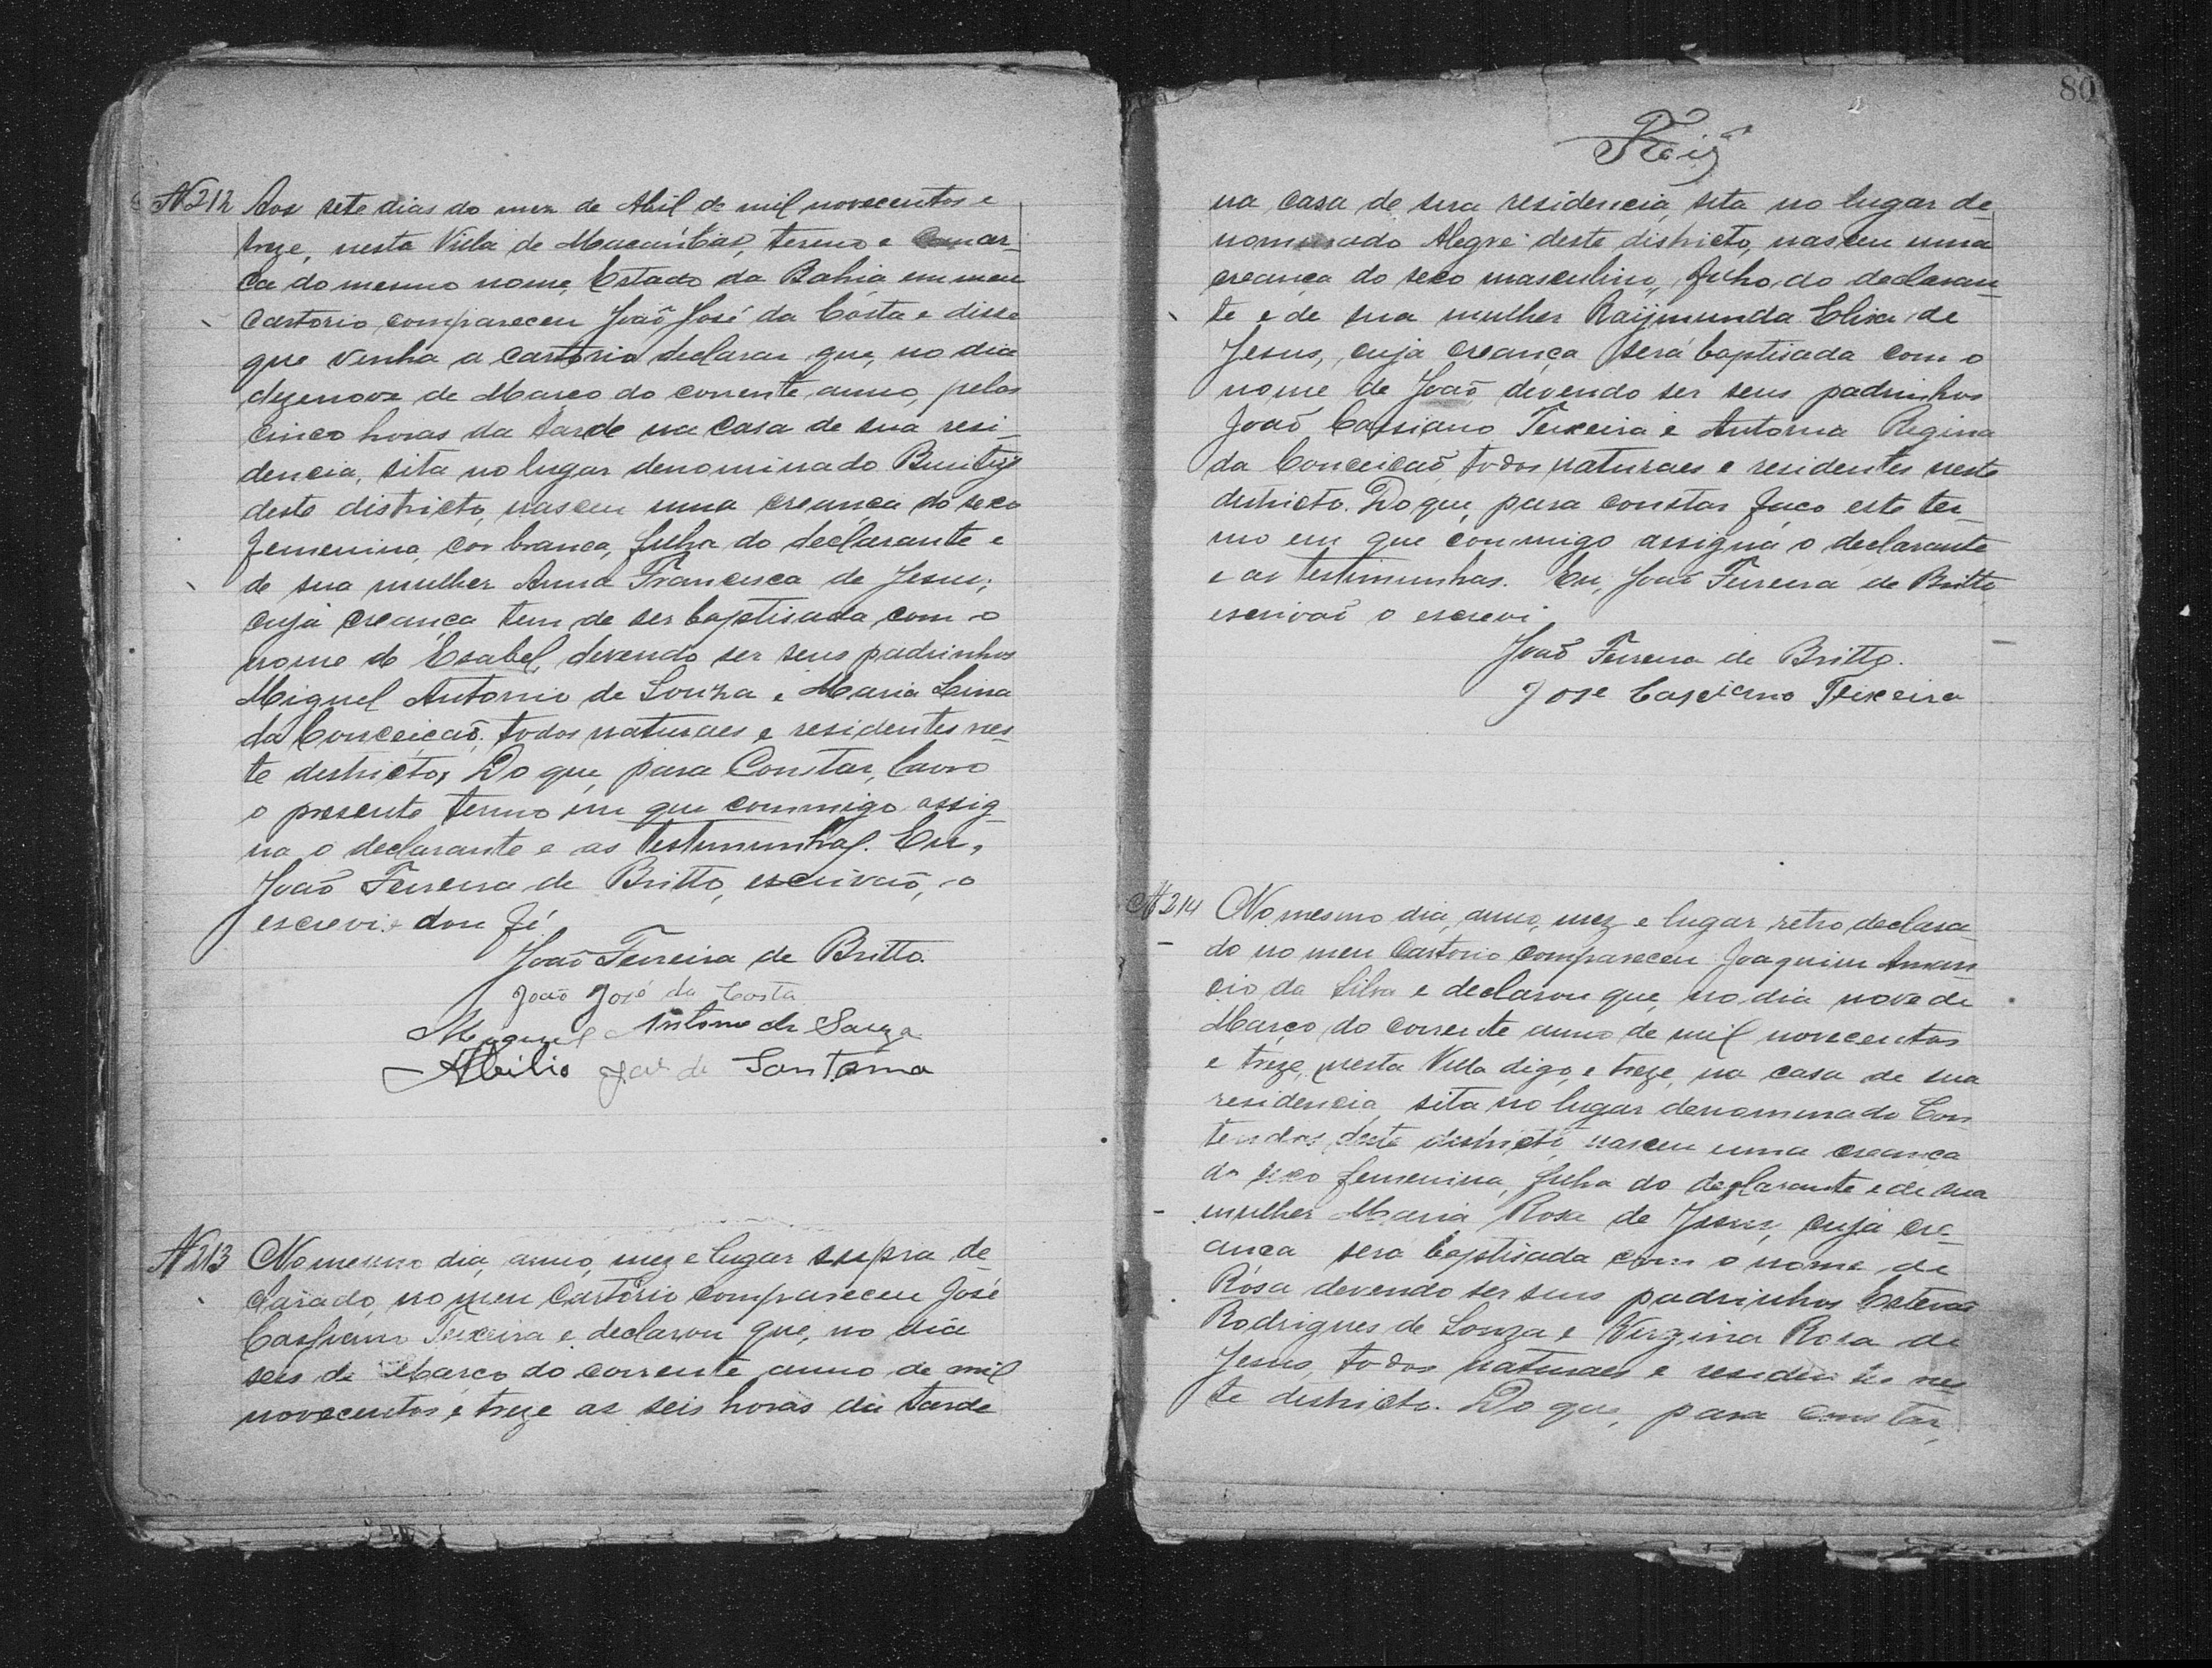 N 212 Aos sete dias do mez de Abil de mil novecentos e
treze, nesta Villa de Macaúbas, termo e Comar-
ca do mesmo nome, Estado da Bahia em meu
cartorio compareceu João José da Costa e disse
que vinha a cartorio declarar que, no dia
dezenove de Março do corrente anno, pelas
cinco horas da tarde na casa de sua resi-
dencia, sita no lugar denominado
deste districto, nasceu uma creança do sexo
femenino, cor branca, filha do declarante e
de sua mulher Anna Francisca de Jesus;
cuja creança tem de ser baptisada com o
nome de Esabel, devendo ser seus padrinhos
Miguel Antonio de Souza e Maria Lina
da Conceicaõ, todos naturaes e residentes nes-
te districto, Do que, para Constar, lavro
o presente termo em que commigo assig-
na o declarante e as testimunhas. Eu,
João Ferreira de Britto, escrivaõ, o
escrevi e dou fé
João Ferreira de Britto.
João José da Costa
Miguel Antonio de Souza
Abilio José de Santana
N 213 No mesmo dia, anno, mez e lugar supra de-
clarado, no meu Cartorio compareceu José
Cassiano Teixeira e declarou que, no dia
seis de Março do corrente anno de mil
novecentos e treze as seis horas da tarde
80
Reis
na casa de sua residencia, sita no lugar de-
nominado Alegre deste districto, nasceu uma
creança do sexo masculino, filho do declaran-
te e de sua mulher Raymunda Elisa de
Jesus, cuja creança será baptisada com o
nome de João, devendo ser seus padrinhos
João Cassiano Teixeira e Antonia Regina
da Conceicaõ, todos naturaes e residentes neste
districto. Do que, para constar faço este ter-
mo em que commigo assigna o declarante
e as testimunhas. Eu, João Ferreira de Britto
escrivaõ o escrevi
João Ferreira de Britto.
Jose Casciano Teixeira
N 214 No mesmo dia, anno, mez e lugar retro declara-
do no meu Cartorio compareceu Joaquim Aman-
cio da Silva e declarou que, no dia nove de
Março do corrente anno de mil novecentos
e treze, nesta Villa digo, e treze, na casa de sua
residencia, sita no lugar denominado Con
tendas deste districto, nasceu uma creança
do sexo femenino, filha do declarante e de sua
mulher Maria Rosa de Jesus, cuja cre-
ança sera baptisada com o nome de
Rosa devendo ser seus padrinhos Estevaõ
Rodrigues de Souza e Virgina Rosa de
Jesus, todos naturaes e residentes nes
te districto. Do que, para constar,